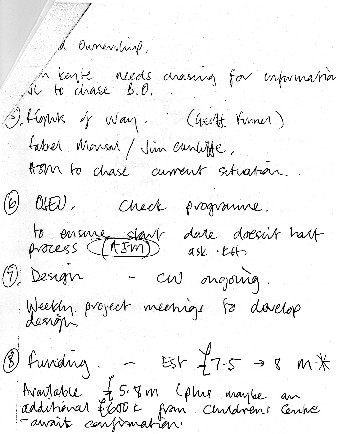 d Ownership.
needs chasing for information
to chase B.O.
5. Rights of way. (Geoff Funnel)
Isabel Monsal / Jim Cunliffe.
ASM to chase current situation..
6 OJEU. Check programme.
to ensure start date doesn't halt
process (ASM) ask
7 Design - CW ongoing.
Weekly project meetings to develop
design
8 Funding. - Est £7.5 → 8 m *
Available £5.8m (plus maybe an
additional £600k from Childrens Centre
- await confirmation.